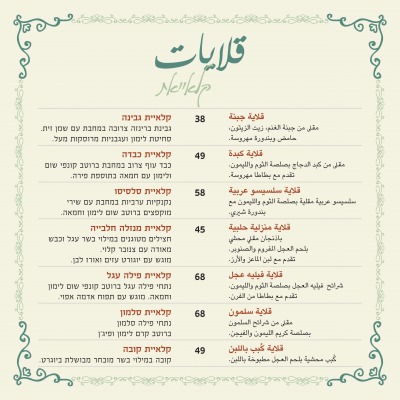 קלאיות
קלאייאת
קלאיית גבינה
38
قلاية جبنة
גבינת ברינזה צרובה במחבת עם שמן זית.
مقلى من جبنة الغنم، زيت الزيتون،
סחיטת לימון ועגבניות מרוסקות מעל.
حامض وبندورة مهروسة.
קלאיית כבדה
49
قلاية كبدة
כבד עוף צרוב במחבת ברוטב קונפי שום
مقلى من كبد الدجاج بصلصة الثوم والليمون،
ולימון עם חמאה בתוספת פירה.
تقدم مع بطاطا مهروسة.
קלאיית סלסיסו
58
قلاية سلسيسو عربية
נקניקיות ערביות במחבת עם שירי
سلسيسو عربية مقلية بصلصة الثوم والليمون مع
מוקפצים ברוטב שום לימון וחמאה.
بندورة شيري.
קלאיית מנזלה חלבייה
45
قلاية منزلية حلبية
חצילים מטוגנים במילוי בשר עגל וכבש
باذنجان مقلي محشي
מאודה עם צנובר קלוי.
بلحم العجل الفروم والصنوبر،
מוגש עם יוגורט עזים ואורז לבן.
تقدم مع لبن الماعز والأرز.
קלאיית פילה עגל
68
قلاية فيليه عجل
נתחי פילה עגל ברוטב קונפי שום לימון
شرائح فيليه العجل بصلصة الثوم والليمون،
וחמאה. מוגש עם תפוח אדמה אפוי.
تقدم مع بطاطا من الفرن.
קלאיית סלמון
68
قلاية سلمون
נתחי פילה סלמון
مقلى من شرائح السلمون
ברוטב קרם לימון ופיג'ן
بصلصة كريم الليمون والفيجن.
קלאיית קובה
49
قلاية كُبب باللبن
קובה במילוי בשר מוכחר מבושלת ביוגרט.
كُبب محشية بلحم العجل مطبوخة باللبن.